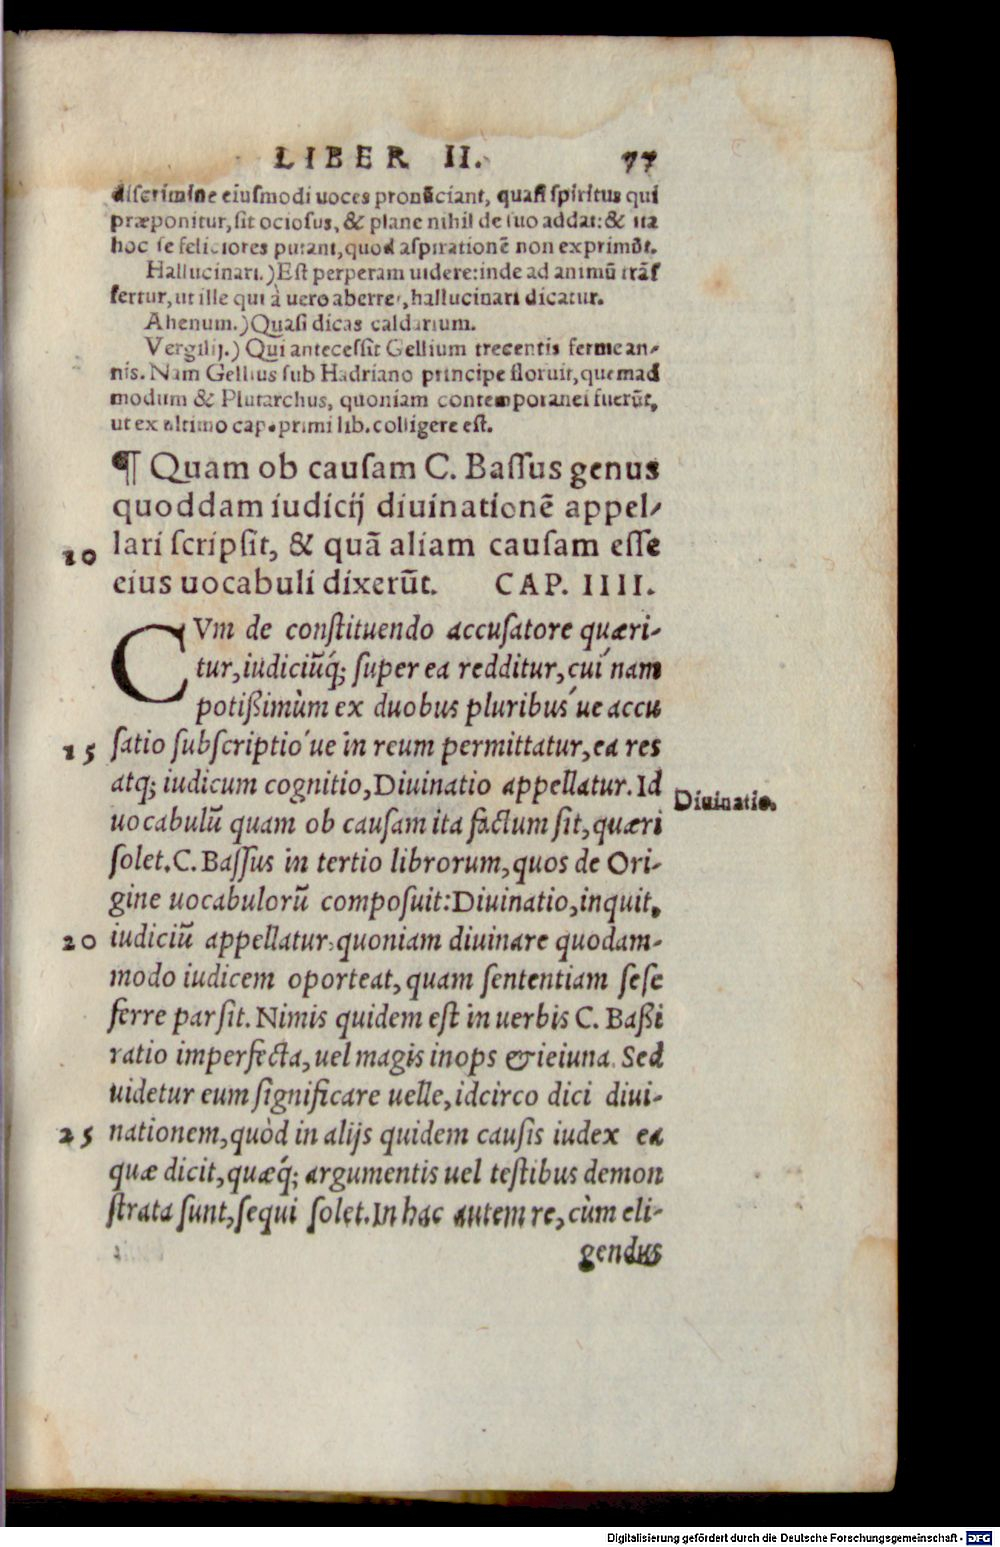 LIBER II. 77
discrimine eiusmodi uoces pronũciant, quasi spiritus qui
præponitur, sit ociosus, & plane nihil de suo addat: & ita
hoc se feliciores putant, quod aspirationẽ non exprimũt.
Hallucinari.) Est perperam uidere: inde ad animũ trãs
fertur, ut ille qui à uero aberret, hallucinari dicatur.
Ahenum.) Quasi dicas caldarium.
Vergilij.) Qui antecessit Gellium trecentis ferme an-
nis. Nam Gellius sub Hadriano principe floruit, quemad
modum & Plutarchus, quoniam contemporanei fuerũt,
ut ex ultimo cap. primi lib. colligere est.
¶ Quam ob causam C. Bassus genus
quoddam iudicij diuinationẽ appel-
10 lari scripsit, & quã aliam causam esse
eius uocabuli dixerũt. CAP. IIII.
CVm de constituendo accusatore quæri-
tur, iudiciũq́; super ea redditur, cui nam
potißimùm ex duobus pluribus ue accu
15 satio subscriptio ue in reum permittatur, ea res
atq; iudicum cognitio, Diuinatio appellatur. Id
Diuinatio.
uocabulũ quam ob causam ita factum sit, quæri
solet. C. Bassus in tertio librorum, quos de Ori-
gine uocabulorũ composuit: Diuinatio, inquit,
20 iudiciũ appellatur, quoniam diuinare quodam-
modo iudicem oporteat, quam sententiam sese
ferre par sit. Nimis quidem est in uerbis C. Baßi
ratio imperfecta, uel magis inops & ieiuna. Sed
uidetur eum significare uelle, idcirco dici diui-
25 nationem, quòd in alijs quidem causis iudex ea
quæ dicit, quæq́; argumentis uel testibus demon
strata sunt, sequi solet. In hac autem re, cùm eli-
gendus
Digitalisierung gefördert durch die Deutsche Forschungsgemeinschaft - DFG